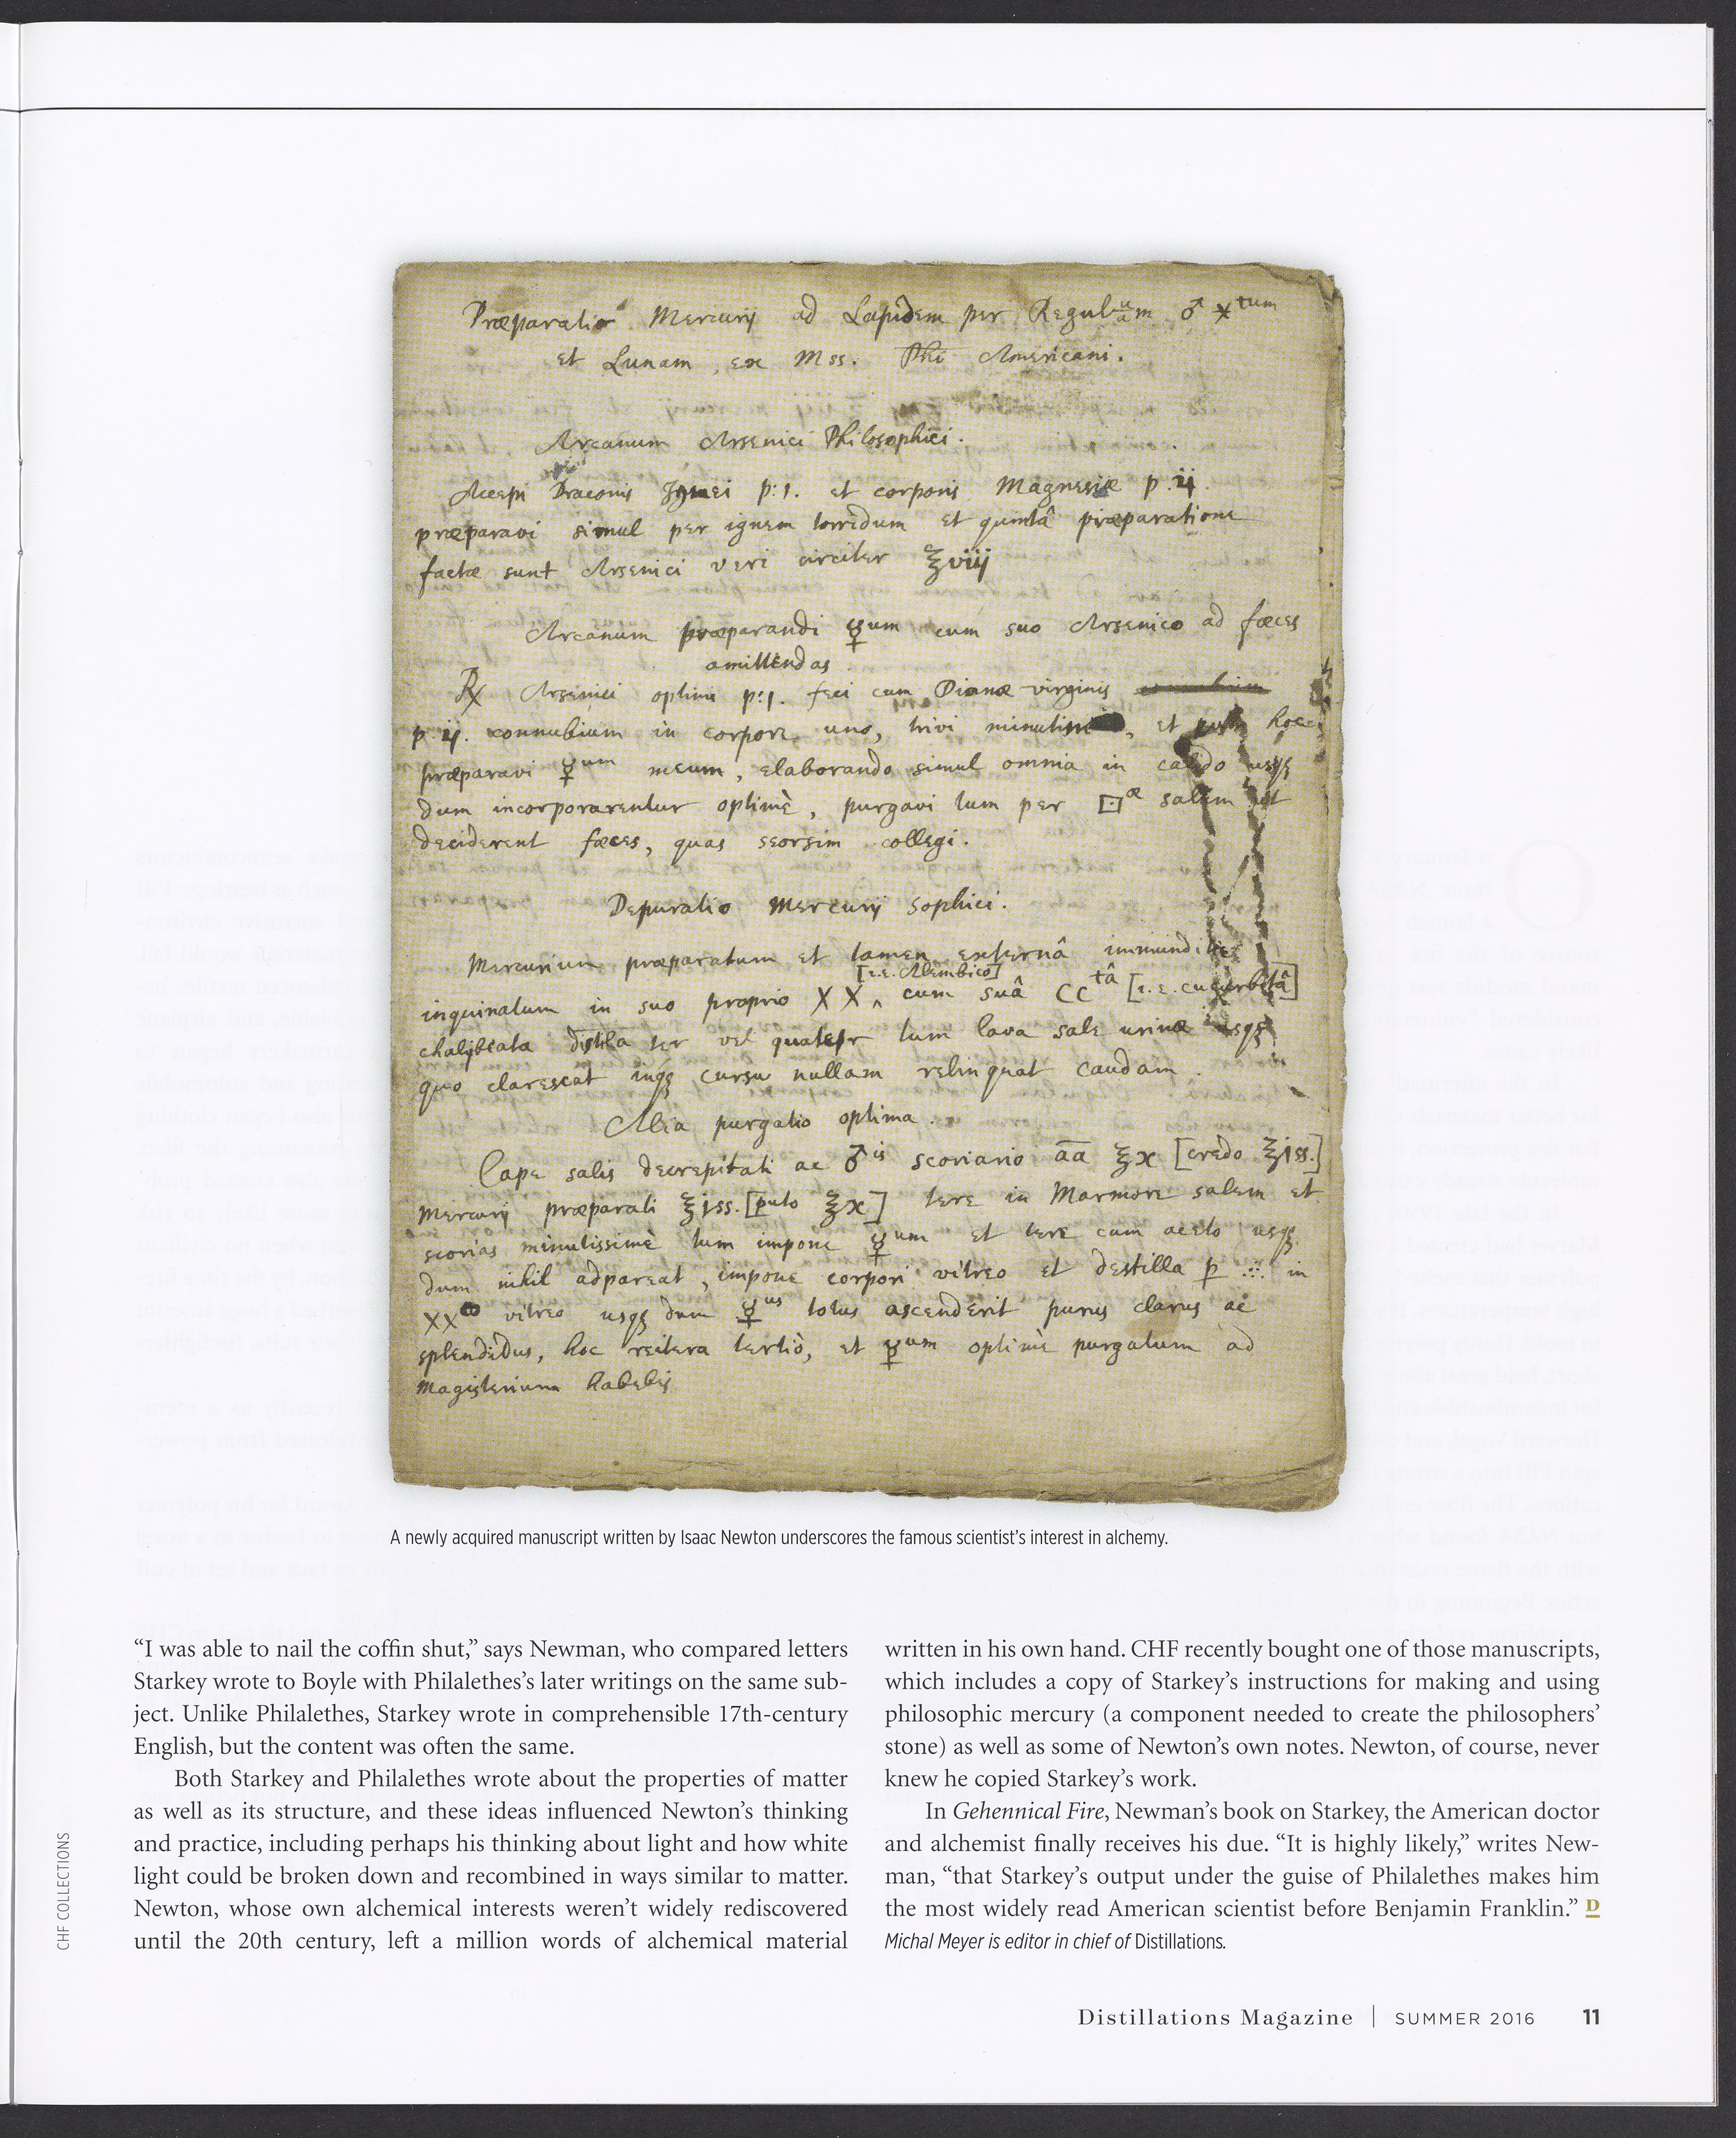 Præparatio Mercurij ad Lapidem per Regulum ♂ ☓tum
et Lunam, ex Mss. Phi Americani.
Arcanum Arsenici Philosophici.
Accepi Draconis Ignei p:1. et corporis Magnesiæ p.ij.
præparavi simul per ignem torridum et quintâ præparatione
factæ sunt Arsenici veri circiter ℥viij
Arcanum præparandi ☿um cum suo Arsenico ad fæces
amittendas
℞ Arsenici optimi p:1. feci cum Dianæ virginis
p ij. connubium in corpore uno, trivi minutim, et hoc
præparavi ☿um meum, elaborando simul omnia in calido usqꝫ
dum incorporarentur optimè, purgavi tum per ⊡æ salem ut
deciderent fæces, quas seorsim collegi.
Depuratio Mercurij Sophici.
Mercurium præparatum et tamen externâ immunditie
[i.e. Alembico]
inquinatum in suo proprio XX ‸ cum suâ CCtâ [i.e. cucurbitâ]
chalybeata distilla ter vel quater tum lava sale urinæ usqꝫ
quo clarescat inqꝫ cursu nullam relinquat caudam.
Alia purgatio optima.
Cape salis decrepitati ac ♂is scoriario āā ℥x [credo ℥iss.]
Mercurij præparati ℥iss. [puto ℥x] tere in Marmore salem et
scorias minutissimè tum impone ☿um et tere cum aceto usqꝫ
dum nihil adpareat, impone corpori vitreo et destilla p ∴ in
XXco vitreo usqꝫ dum ☿us totus ascenderit purus clarus ac
splendidus, hoc reitera tertiò, et ☿um optimè purgatum ad
Magisterium habebis
A newly acquired manuscript written by Isaac Newton underscores the famous scientist’s interest in alchemy.
“I was able to nail the coffin shut,” says Newman, who compared letters
Starkey wrote to Boyle with Philalethes’s later writings on the same sub-
ject. Unlike Philalethes, Starkey wrote in comprehensible 17th-century
English, but the content was often the same.
Both Starkey and Philalethes wrote about the properties of matter
as well as its structure, and these ideas influenced Newton’s thinking
and practice, including perhaps his thinking about light and how white
light could be broken down and recombined in ways similar to matter.
Newton, whose own alchemical interests weren’t widely rediscovered
until the 20th century, left a million words of alchemical material
written in his own hand. CHF recently bought one of those manuscripts,
which includes a copy of Starkey’s instructions for making and using
philosophic mercury (a component needed to create the philosophers’
stone) as well as some of Newton’s own notes. Newton, of course, never
knew he copied Starkey’s work.
In Gehennical Fire, Newman’s book on Starkey, the American doctor
and alchemist finally receives his due. “It is highly likely,” writes New-
man, “that Starkey’s output under the guise of Philalethes makes him
the most widely read American scientist before Benjamin Franklin.” D
Michal Meyer is editor in chief of Distillations.
CHF COLLECTIONS
Distillations Magazine | SUMMER 2016 11